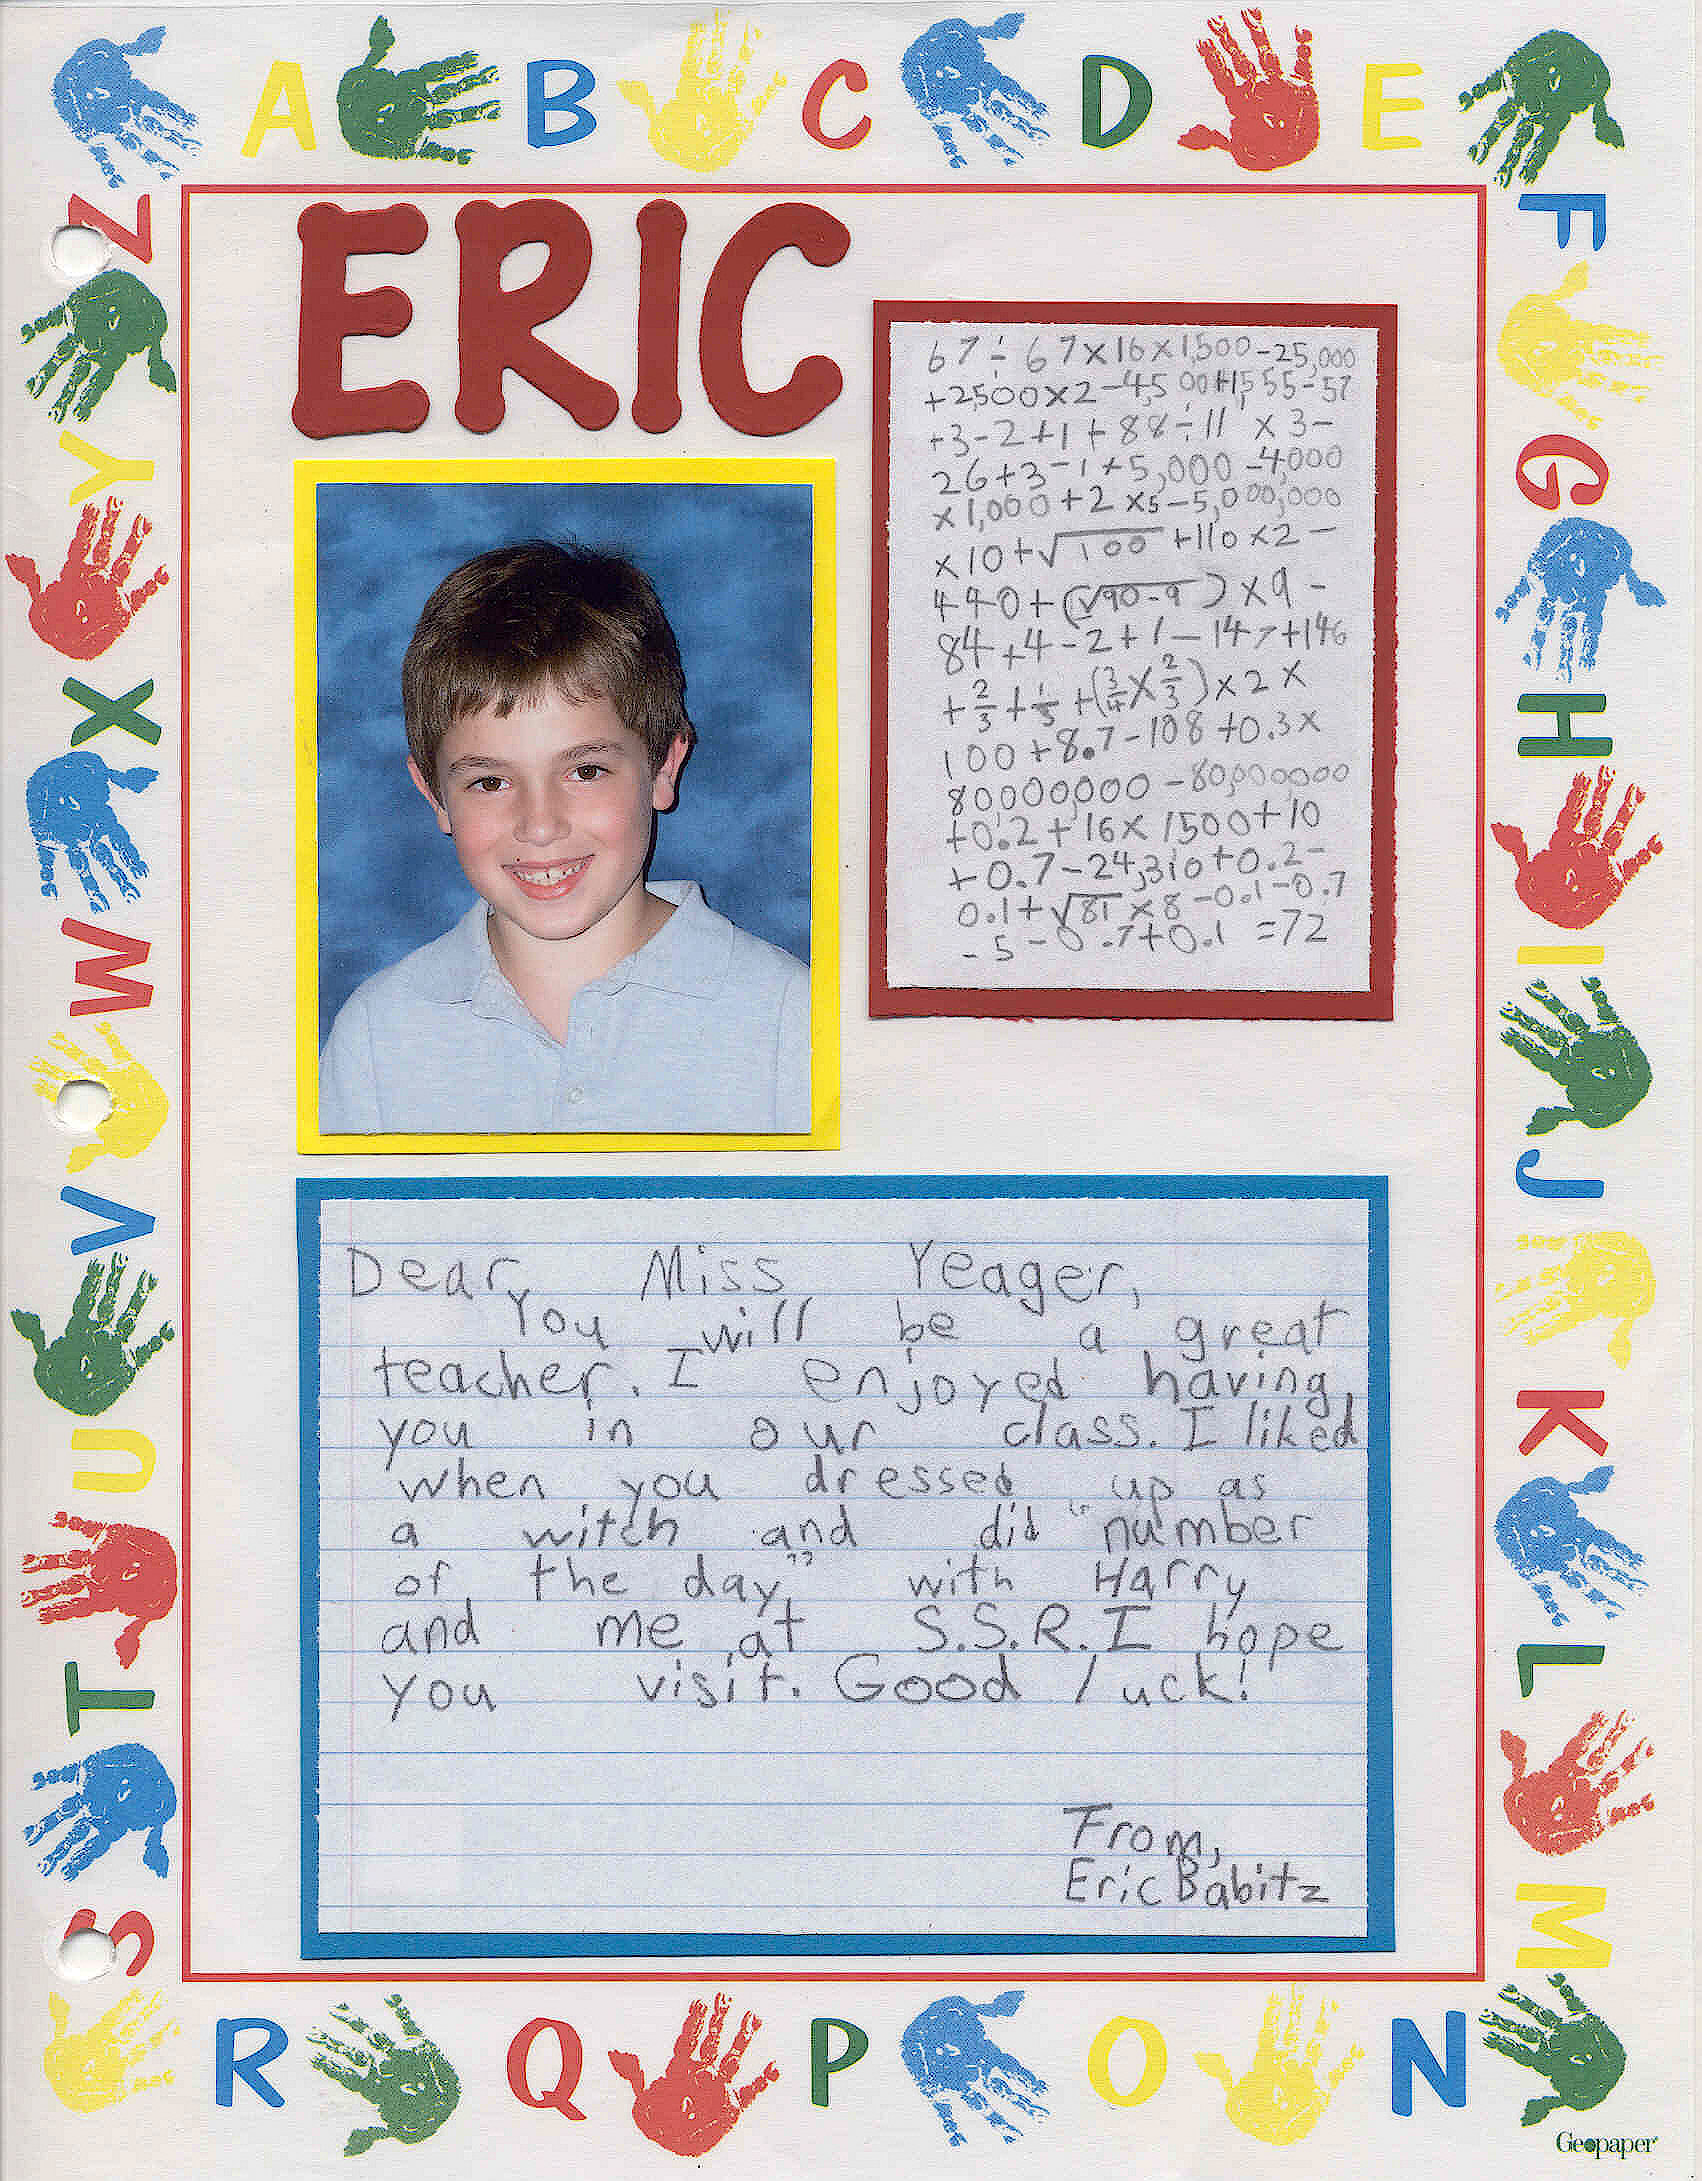 A B C D E
F G H I J K L M
N O P Q R
S T U V W X Y Z
ERIC
67÷67×16×1,500-25,000
+2,500×2-4,500+1,555-57
+3-2+1+88÷11×3-
26+3-1+5,000-4,000
×1,000+2×5-5,000,000
×10+√100+110×2-
440+(√90-9)×9-
84+4-2+1-147+146
+2/3+1/3+(3/4×2/3)×2×
100+8.7-108+0.3×
80000,000-80,000000
+0.2+16×1500+10
+0.7-24,310+0.2-
0.1+√81×8-0.1-0.7
-5-0.7+0.1=72
Dear, Miss Yeager,
You will be a great
teacher. I enjoyed having
you in our class. I liked
when you dressed up as
a witch and did "number
of the day" with Harry
and me at S.S.R. I hope
you visit. Good luck!
From,
Eric Babitz
Geopaper